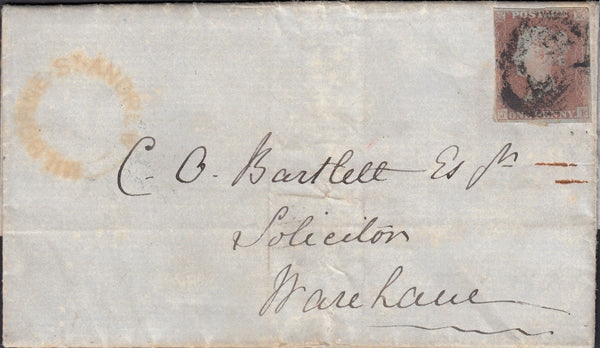 MILBORNE-ST-ANDREW
POSTAGE
ONE PENNY
C. O. Bartlett Esqr
Solicitor
Wareham